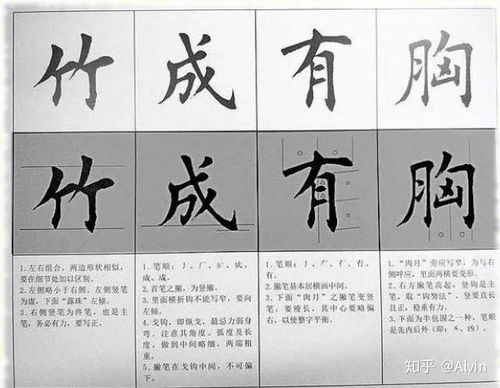 竹 成 有 胸
竹 成 有 胸
1.左右组合，两边形状相似，
要在细节处加以区别。
2.左侧略小于右侧。左侧竖笔
为虚，下面“露珠”左倾。
3.右侧竖笔为终笔，也是主
笔，务必有力，要写正。
1.笔顺：
成、成。
2.首笔之撇，为竖撇。
3.里面横折钩不能写窄，要向
左倾。
4.戈钩，即纵戈，最忌力弱身
弯。注意其角度、弧度及长
度，做到中间略细、两端粗
重。
5.撇笔在戈钩中间，不可偏
下。
1.笔顺：
有。
2.撇笔基本居横画中间。
3.下面“肉月”之撇笔变竖
笔，要瘦长，其中心要略偏
右，以使整字平衡。
1.“肉月”旁应写窄，为与右
侧呼应，里面两横要变形。
2.右方撇笔高起，竖钩是主
笔，取“钩努法”，竖要直长
且正，稳重有力。
3.下面为半包围之一种，笔顺
是先内后外（即：
知乎 @Alvin